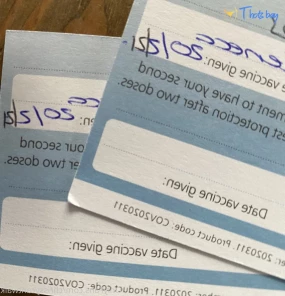 e vaccine given: 20/2/21
ment to have your second
est protection after two doses.
Date vaccine given:
Product code: COV2020311
20/2/21
our second
er two doses.
Date vaccine given:
Product code: COV2020311